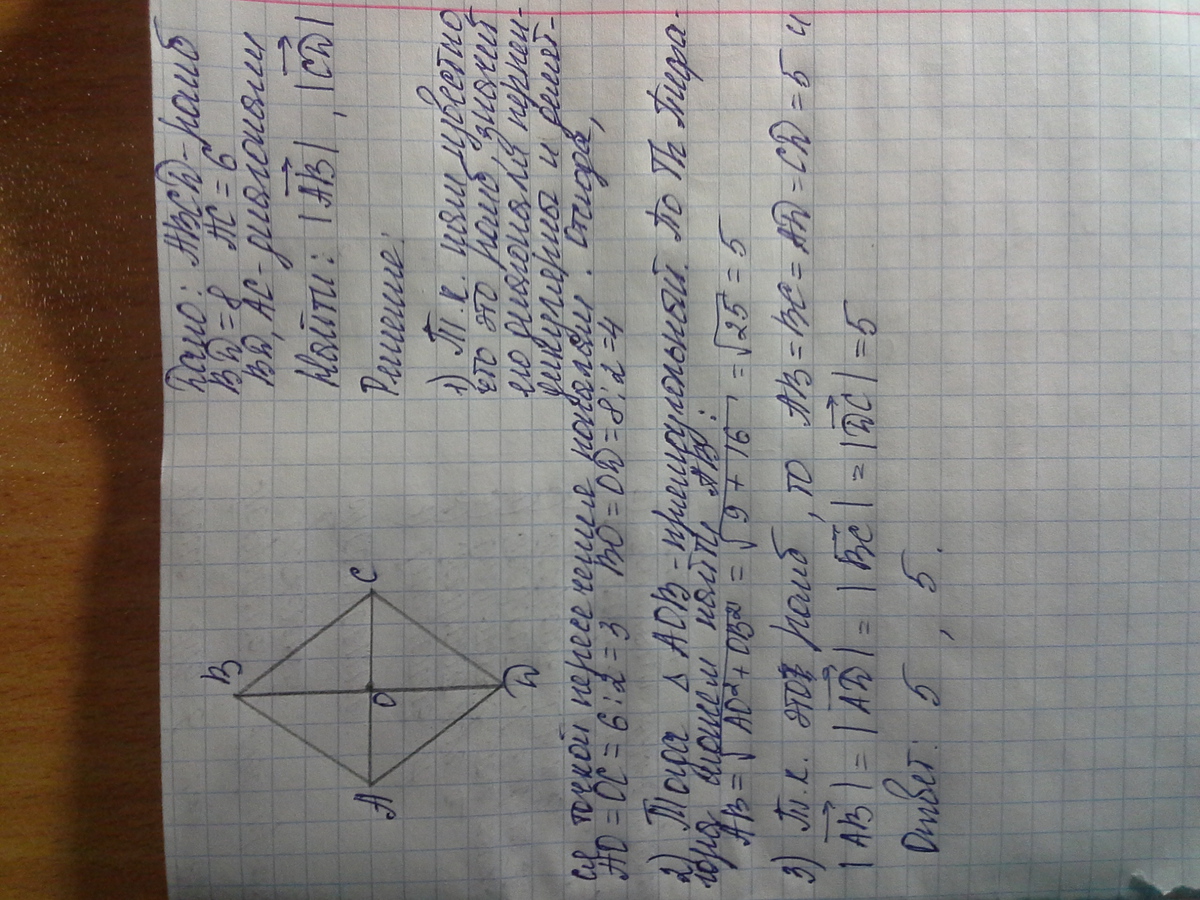 Дано: ABCD-ромб
BD = 8 AC = 6
BD, AC - диагонали
Найти: |AB|, |CD|
Решение:
1) Т.к. нам известно
что это ромб значит
его диагонали перпен-
дикулярны и делят-
B
A
C
O
D
ся точкой пересечение пополам. Отсюда,
AO = OC = 6 : 2 = 3 BO = OD = 8 : 2 = 4
2) Тогда △ AOB - прямоугольный. По Th Пифа-
гора можем найти AB:
AB = √AO² + OB² = √9 + 16 = √25 = 5
3) Т.к. это ромб, то AB = BC = AD = CD = 5 и
|AB| = |AD| = |BC| = |DC| = 5
Ответ: 5, 5.